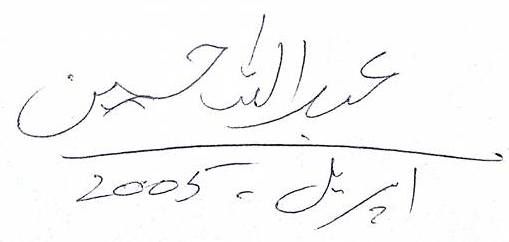 عبداللہ حسین
اپریل - 2005